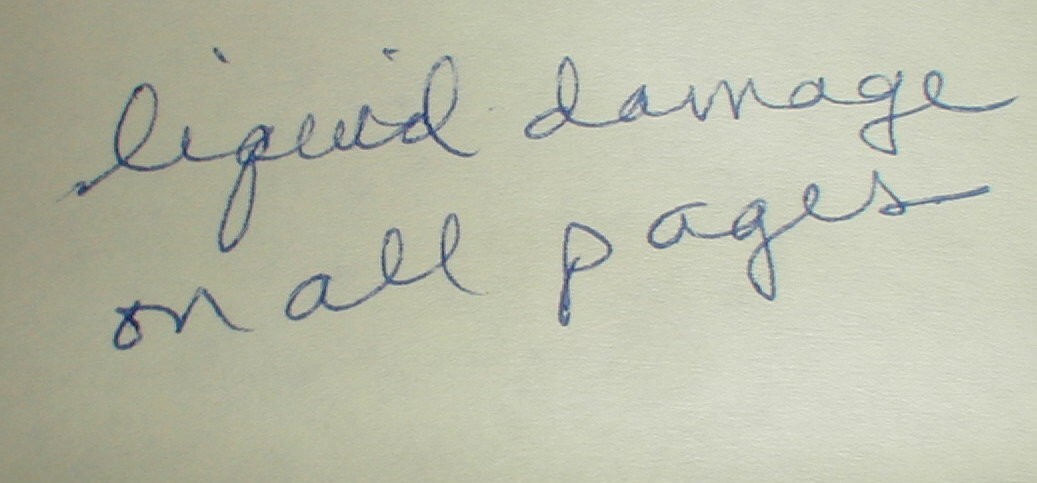 liquid damage
on all pages